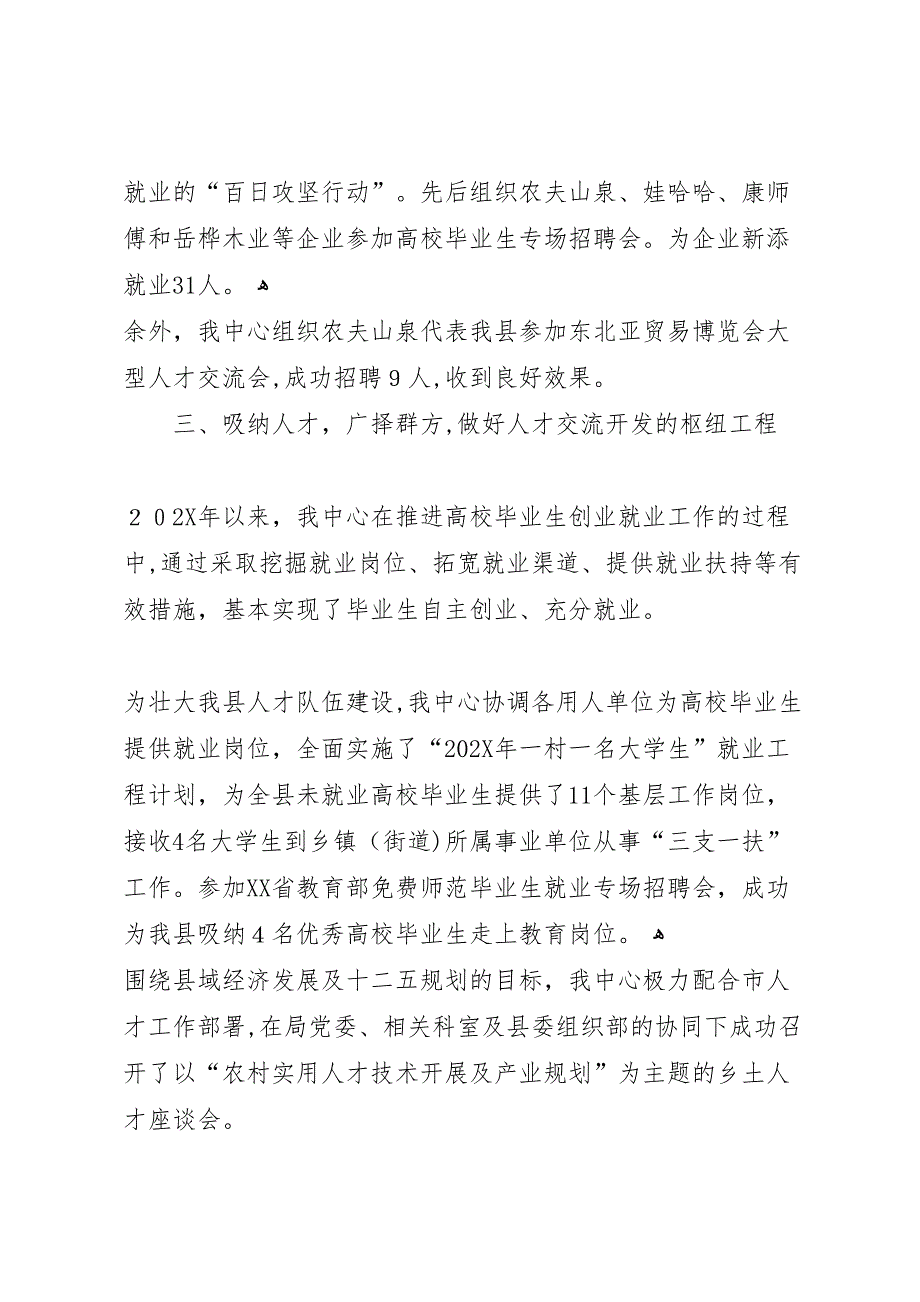 就业的“百日攻坚行动”。先后组织农夫山泉、娃哈哈、康师
傅和岳桦木业等企业参加高校毕业生专场招聘会。为企业新添
就业31人。 ﻫ
余外，我中心组织农夫山泉代表我县参加东北亚贸易博览会大
型人才交流会,成功招聘９人,收到良好效果。
三、吸纳人才，广择群方,做好人才交流开发的枢纽工程
２０2X年以来，我中心在推进高校毕业生创业就业工作的过程
中,通过采取挖掘就业岗位、拓宽就业渠道、提供就业扶持等有
效措施，基本实现了毕业生自主创业、充分就业。
为壮大我县人才队伍建设,我中心协调各用人单位为高校毕业生
提供就业岗位，全面实施了“202X年一村一名大学生”就业工
程计划，为全县未就业高校毕业生提供了11个基层工作岗位，
接收4名大学生到乡镇（街道)所属事业单位从事“三支一扶”
工作。参加XX省教育部免费师范毕业生就业专场招聘会，成功
为我县吸纳４名优秀高校毕业生走上教育岗位。 ﻫ
围绕县域经济发展及十二五规划的目标，我中心极力配合市人
才工作部署,在局党委、相关科室及县委组织部的协同下成功召
开了以“农村实用人才技术开展及产业规划”为主题的乡土人
才座谈会。